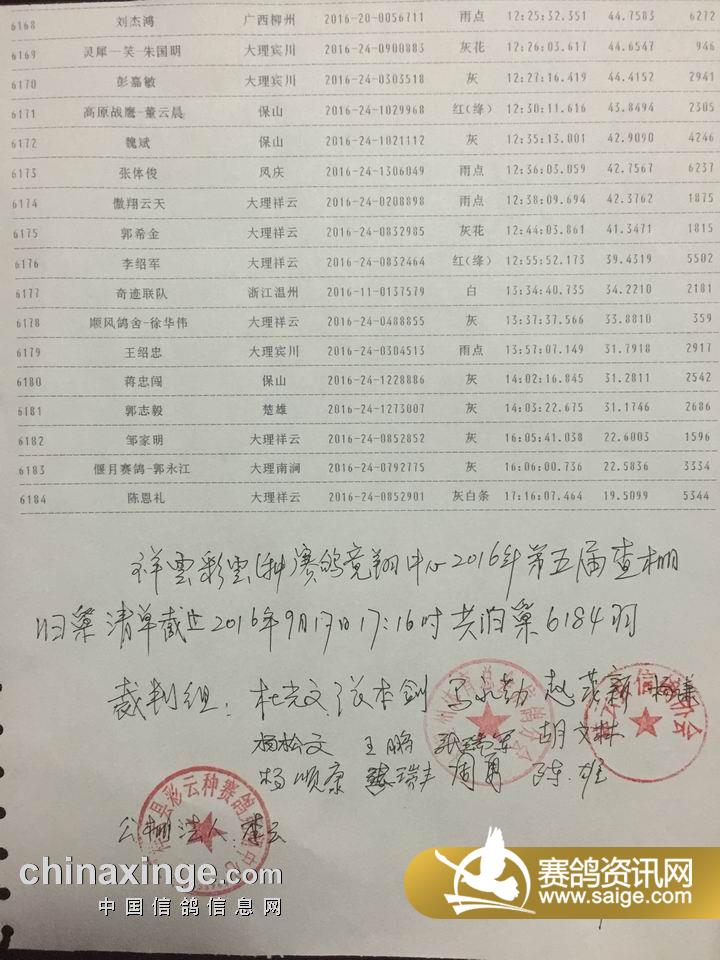 6168 刘杰鸿 广西柳州 2016-20-0056711 雨点 12:25:32.351 44.7583 6272
6169 灵犀一笑 朱国明 大理宾川 2016-24-0900883 灰花 12:26:03.617 44.6547 946
6170 彭嘉敏 大理宾川 2016-24-0303518 灰 12:27:16.419 44.4152 2941
6171 高原战鹰-董云晨 保山 2016-24-1029968 红(绛) 12:30:11.616 43.8494 2305
6172 魏斌 保山 2016-24-1021112 灰 12:35:13.001 42.9090 4246
6173 张体俊 凤庆 2016-24-1306049 雨点 12:36:03.059 42.7567 6237
6174 傲翔云天 大理祥云 2016-24-0208898 雨点 12:38:09.694 42.3762 1875
6175 郭希金 大理祥云 2016-24-0832985 灰花 12:44:03.861 41.3471 1815
6176 李绍军 大理祥云 2016-24-0832464 红(绛) 12:55:52.173 39.4319 5502
6177 奇迹联队 浙江温州 2016-11-0137579 白 13:34:40.735 34.2210 2181
6178 顺风鸽舍-徐华伟 大理祥云 2016-24-0488855 灰 13:37:37.566 33.8810 359
6179 王绍忠 大理宾川 2016-24-0304513 雨点 13:57:07.149 31.7918 2917
6180 蒋忠闯 保山 2016-24-1228886 灰 14:02:16.845 31.2811 2542
6181 郭志毅 楚雄 2016-24-1273007 灰 14:03:22.675 31.1746 2686
6182 邹家明 大理祥云 2016-24-0852852 灰 16:05:41.038 22.6003 1596
6183 偃月赛鸽-郭永江 大理南涧 2016-24-0792775 灰 16:06:00.736 22.5836 3334
6184 陈恩礼 大理祥云 2016-24-0852901 灰白条 17:16:07.464 19.5099 5344
祥雲彩雲种赛鸽竞翔中心2016年第五届查棚
归巢清单截止2016年9月17日17:16时共归巢6184羽
裁判组: 杜光文 张本剑
杨松文 王鹏 胡文林
杨顺康 瑞丰 周勇 陈雄
公棚法人: 李云
县彩云种赛鸽
chinaxinge.com
中国信鸽信息网
赛鸽资讯网
www.saige.com